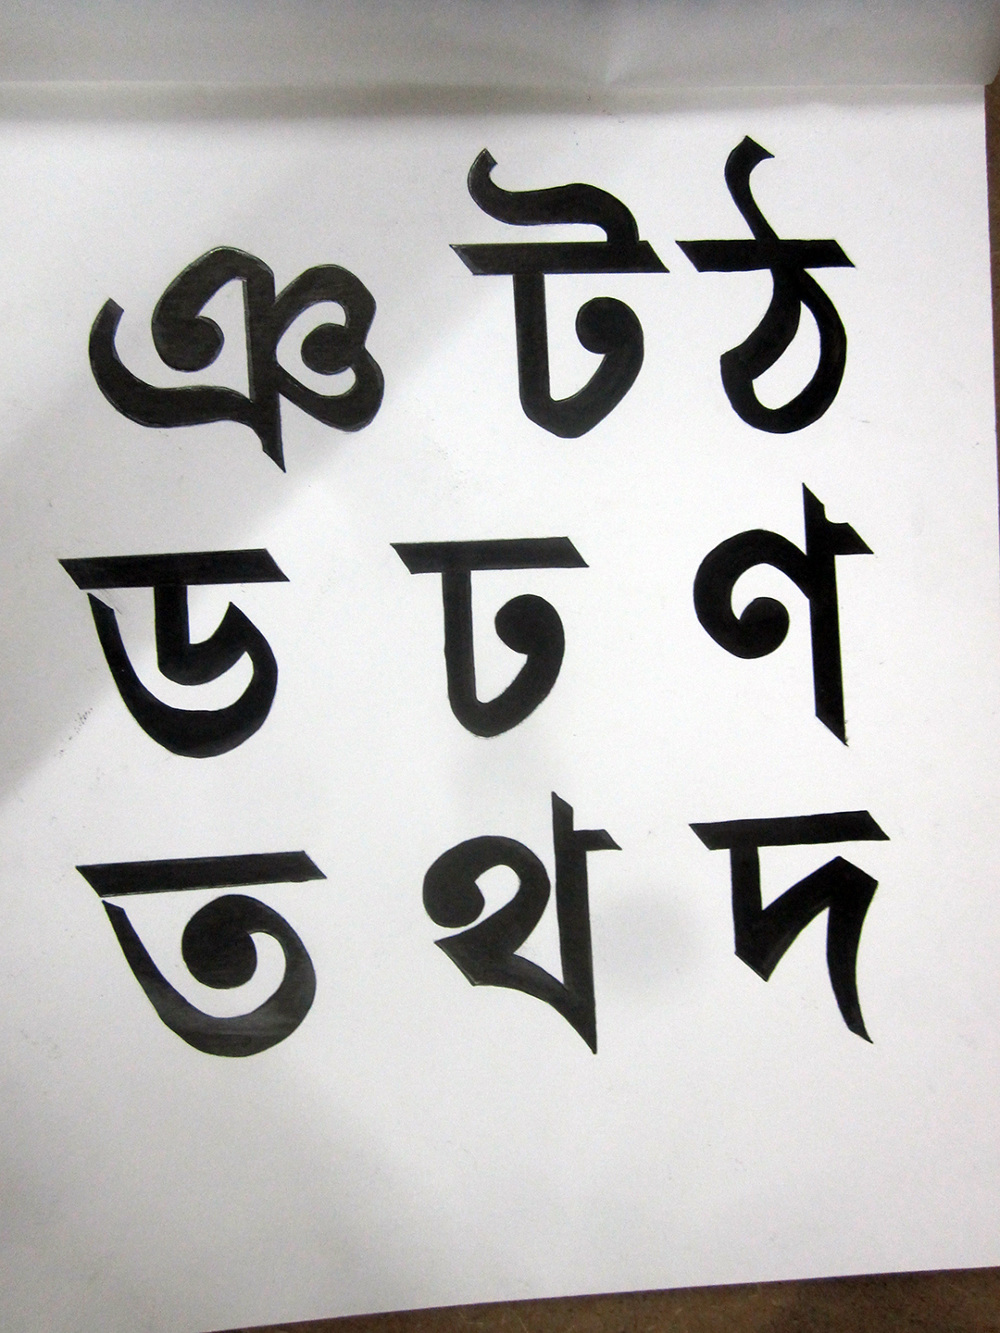 ঞ ট ঠ
ড ঢ ণ
ত থ দ